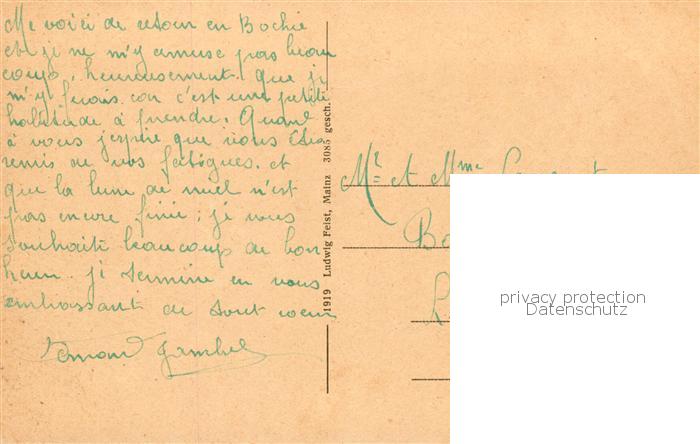 Me voici de retour en Bochie
et je ne m'y amuse pas beau
coup, heureusement. que je
m'y ferais. car c'est une petite
habitude à prendre. Quand
à vous j'espère que vous êtes
remis de vos fatigues. et
que la lune de miel n'est
pas encore finie; je vous
souhaite beaucoup de bon
heur. je termine en vous
embrassant de tout coeur
1919 Ludwig Feist, Mainz 3085 gesch.
Mr et Mme
privacy protection
Datenschutz